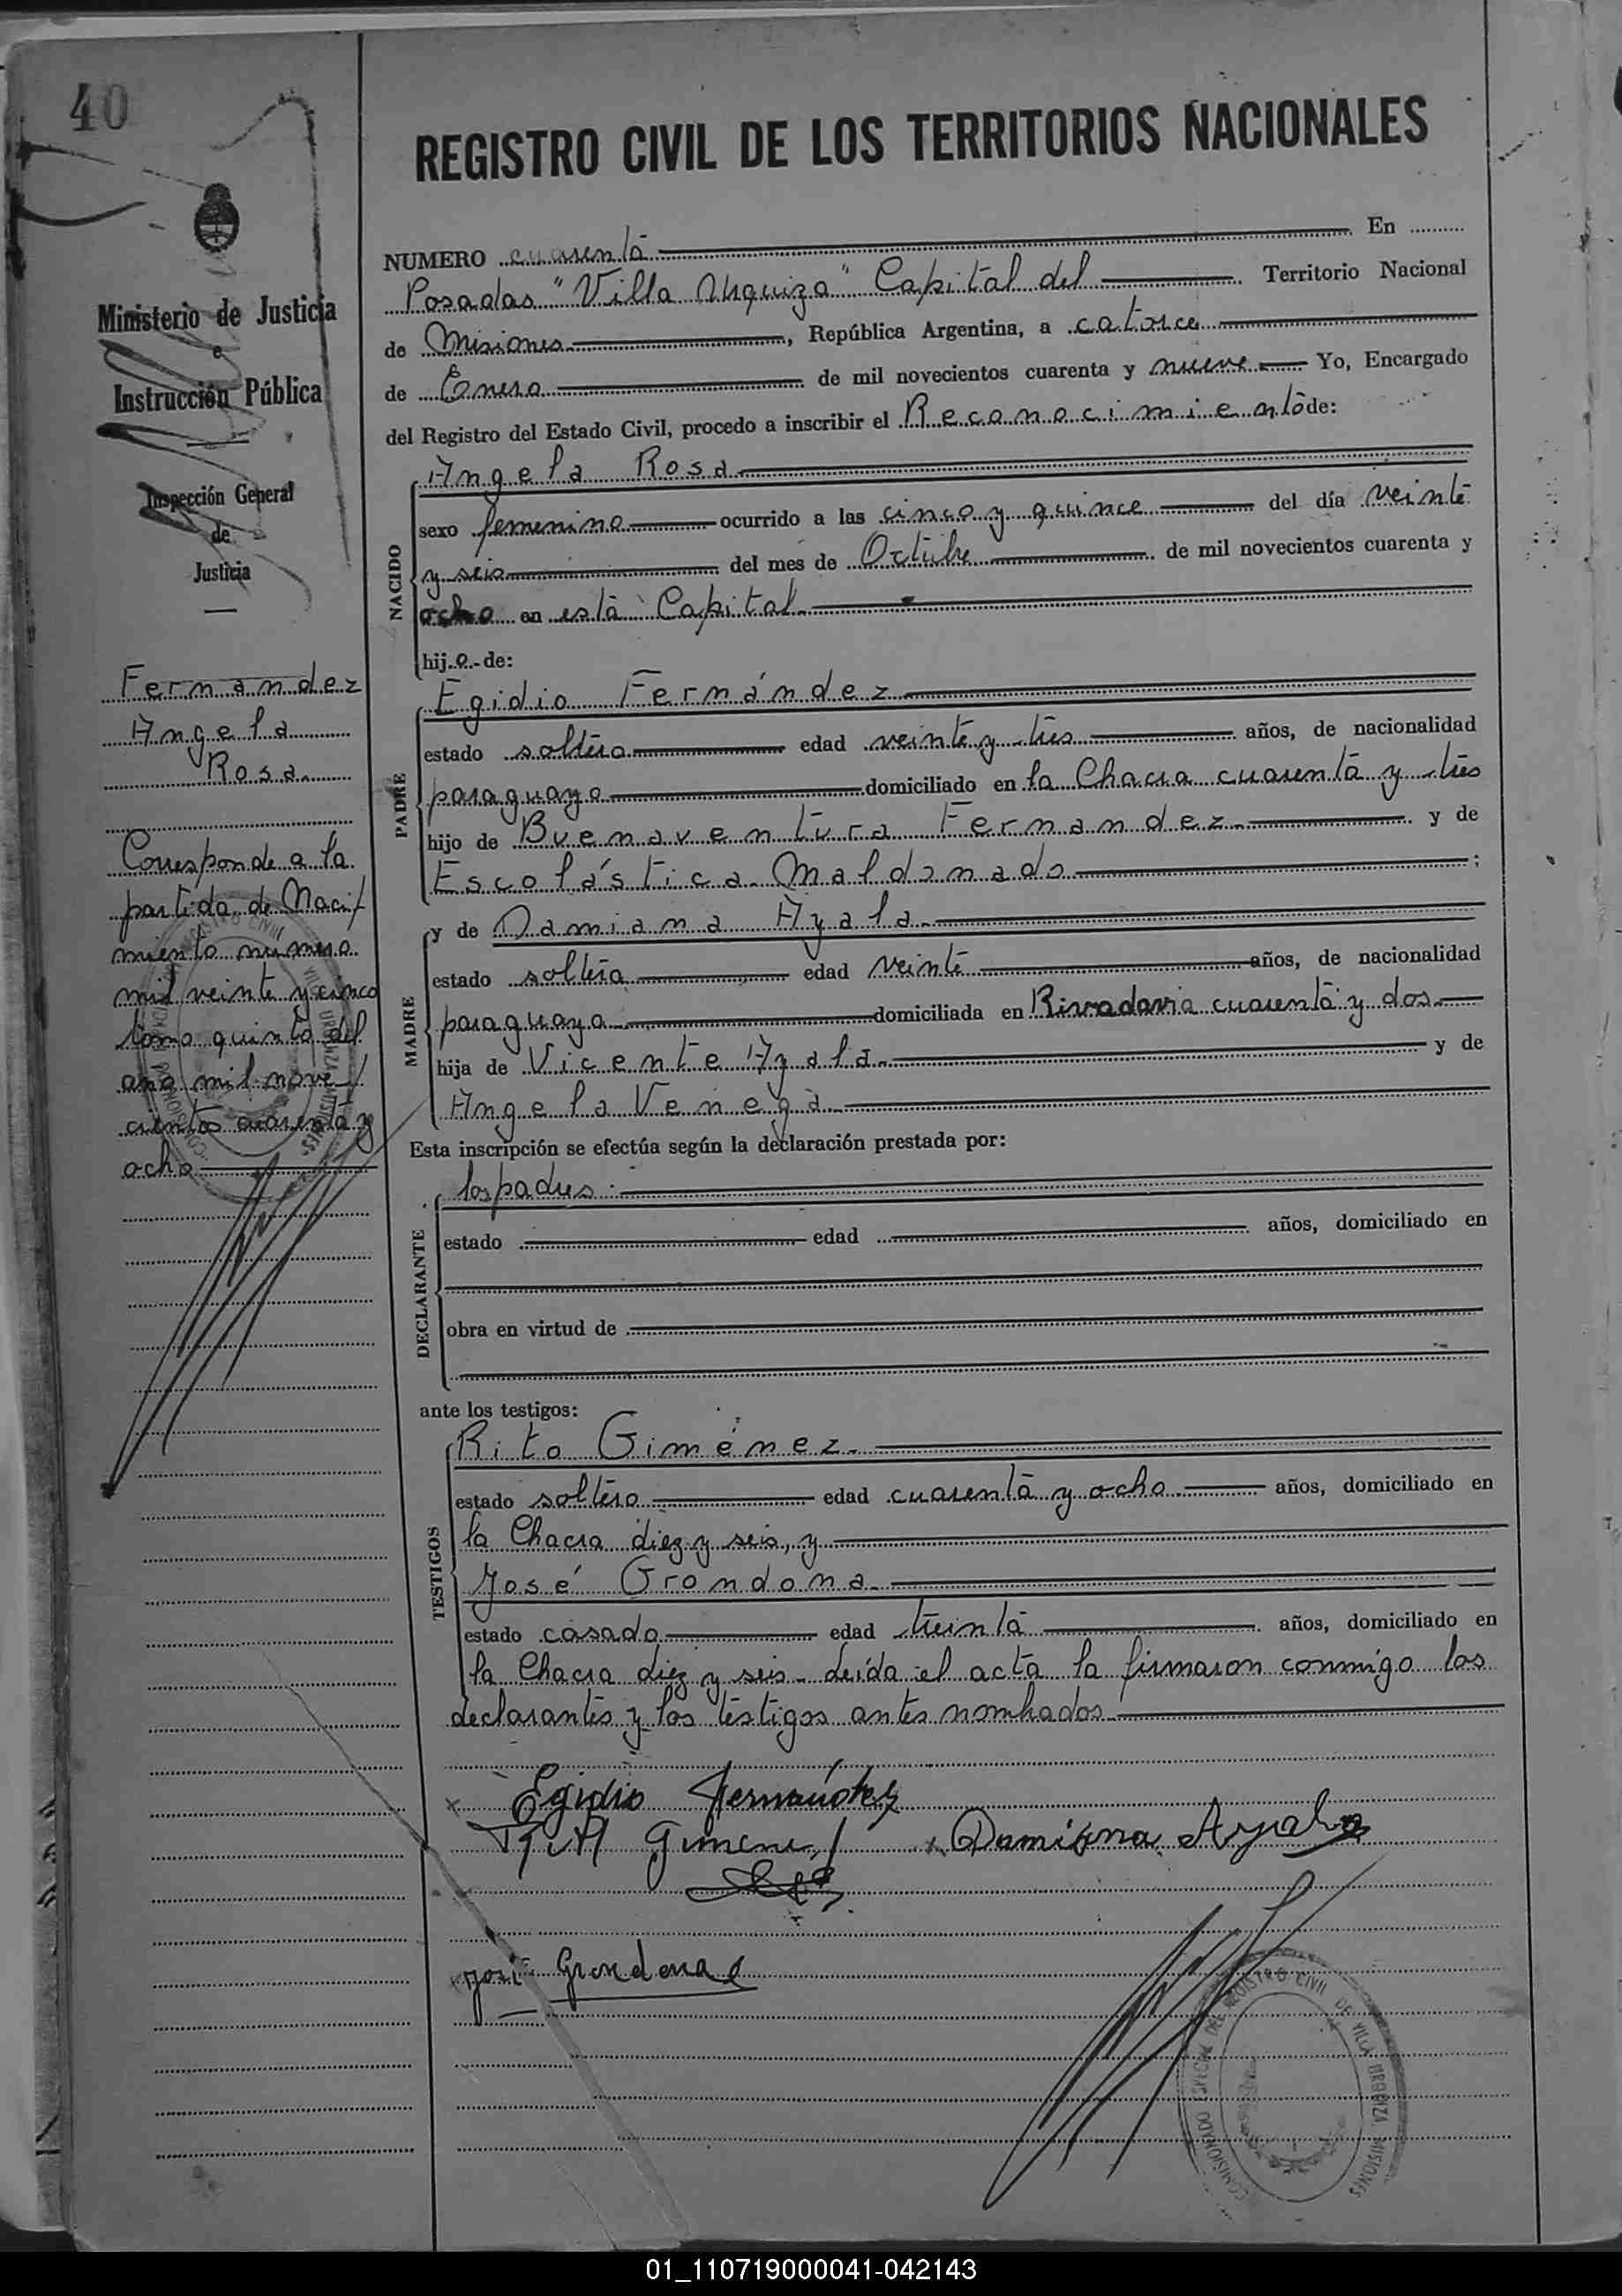 40
REGISTRO CIVIL DE LOS TERRITORIOS NACIONALES
Ministerio de Justicia
e
Instrucción Pública
Inspección General
de
Justicia
Fernandez
Angela
Rosa
Corresponde a la
partida de Naci/
miento numero
mil veinte y cinco
tomo quinto del
año mil nove/
cientos cuarenta y
ocho
NUMERO cuarenta En
Posadas "Villa Urquiza" Capital del Territorio Nacional
de Misiones, República Argentina, a catorce
de Enero de mil novecientos cuarenta y nueve Yo, Encargado
del Registro del Estado Civil, procedo a inscribir el Reconocimiento de:
NACIDO
Angela Rosa
sexo femenino ocurrido a las cinco y quince del día veinte
y seis del mes de Octubre de mil novecientos cuarenta y
ocho en esta Capital
hij.a.- de:
PADRE
Egidio Fernández
estado soltero edad veinte y tres años, de nacionalidad
paraguayo domiciliado en la Chacra cuarenta y tres
hijo de Buenaventura Fernandez y de
Escolástica Maldonado;
MADRE
y de Damiana Ayala
estado soltera edad veinte años, de nacionalidad
paraguaya domiciliada en Rivadavia cuarenta y dos
hija de Vicente Ayala y de
Angela Venega
Esta inscripción se efectúa según la declaración prestada por:
DECLARANTE
los padres
estado edad años, domiciliado en
obra en virtud de
ante los testigos:
TESTIGOS
Rito Giménez
estado soltero edad cuarenta y ocho años, domiciliado en
la Chacra diez y seis, y
José Grondona
estado casado edad treinta años, domiciliado en
la Chacra diez y seis. Leída el acta la firmaron conmigo los
declarantes y los testigos antes nombrados
x Egidio Fernández
Gimene x Damiana Ayala
José Grondona
COMISIONADO ESPECIAL DEL REGISTRO CIVIL DE VILLA URQUIZA MISIONES
01_110719000041-042143